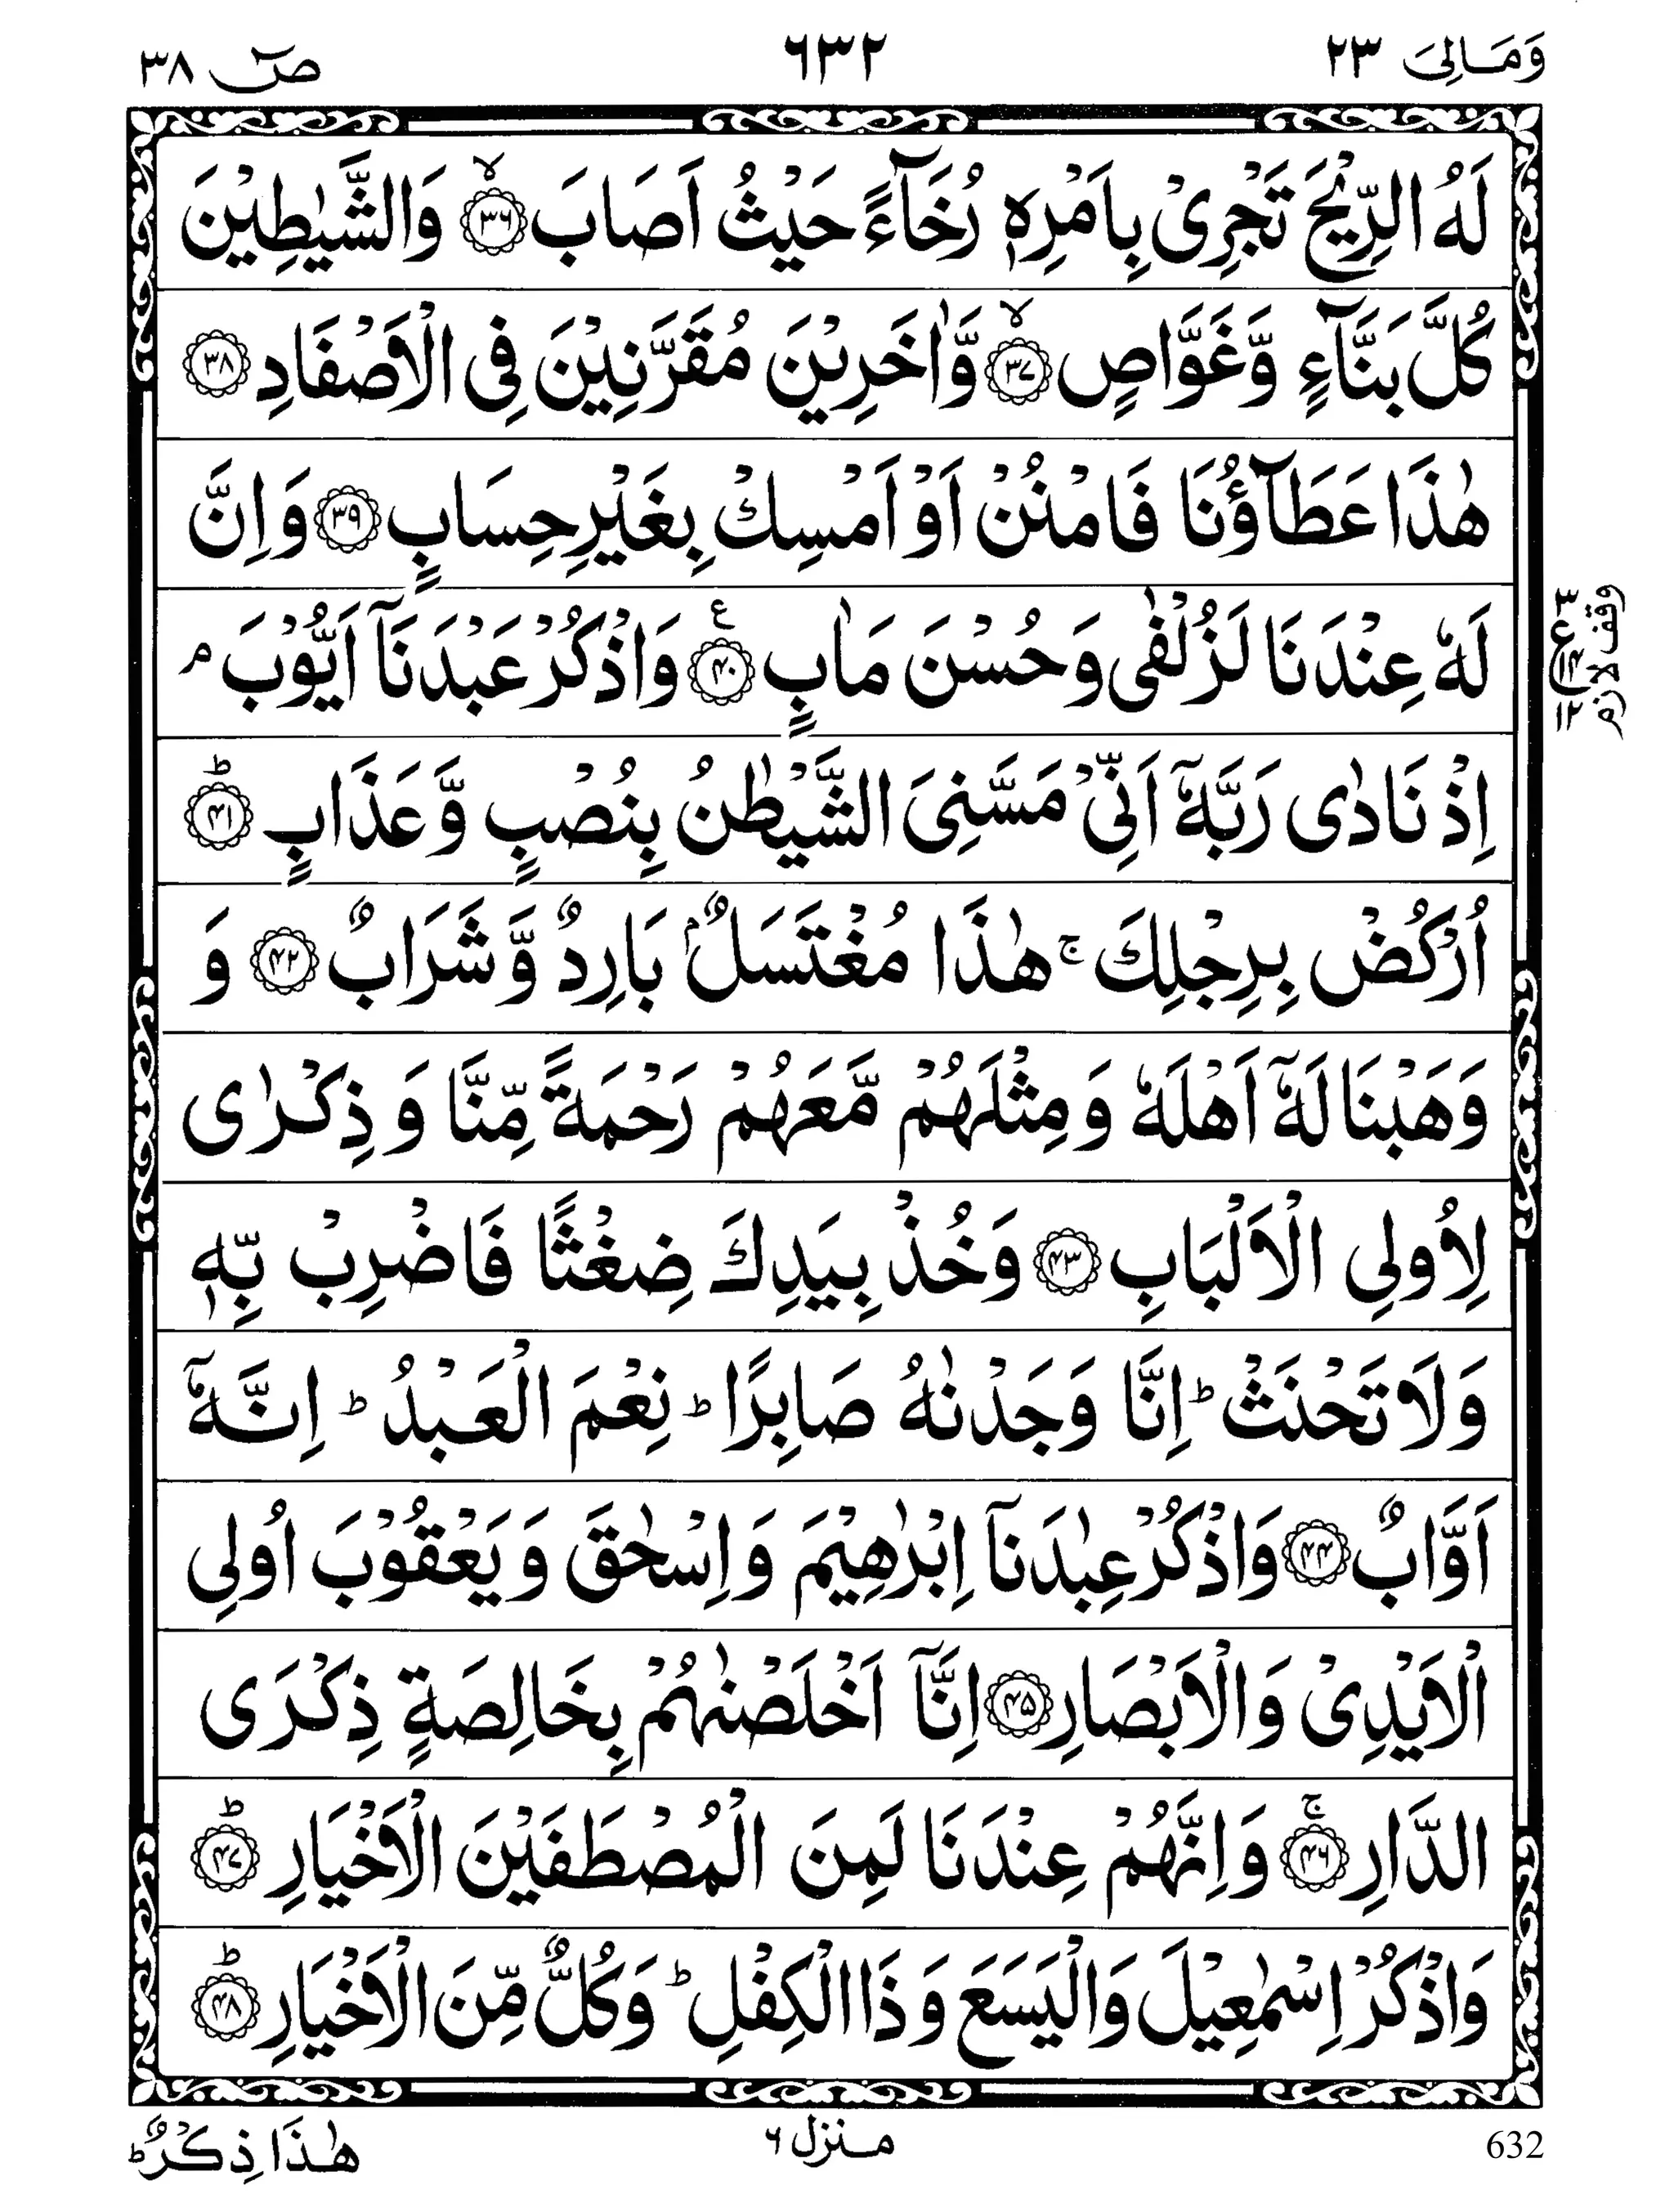 وَمَالِیَ ٢٣
٦٣٢
صٓ ٣٨
لَهُ الرِّيْحَ تَجْرِيْ بِاَمْرِهٖ رُخَآءً حَيْثُ اَصَابَ ﴿٣٦﴾ۙ وَالشَّيٰطِيْنَ
كُلَّ بَنَّآءٍ وَّغَوَّاصٍ ﴿٣٧﴾ۙ وَّاٰخَرِيْنَ مُقَرَّنِيْنَ فِى الْاَصْفَادِ ﴿٣٨﴾
هٰذَا عَطَآؤُنَا فَامْنُنْ اَوْ اَمْسِكْ بِغَيْرِ حِسَابٍ ﴿٣٩﴾ وَاِنَّ
لَهٗ عِنْدَنَا لَزُلْفٰى وَحُسْنَ مَاٰبٍ ﴿٤٠﴾ ع وَاذْكُرْ عَبْدَنَآ اَيُّوْبَ ۘ
وقف لازم
٣ ع ١٤ ١٢
اِذْ نَادٰى رَبَّهٗٓ اَنِّيْ مَسَّنِيَ الشَّيْطٰنُ بِنُصْبٍ وَّعَذَابٍ ﴿٤١﴾ؕ
اُرْكُضْ بِرِجْلِكَ ۚ هٰذَا مُغْتَسَلٌۢ بَارِدٌ وَّشَرَابٌ ﴿٤٢﴾ وَ
وَهَبْنَا لَهٗٓ اَهْلَهٗ وَمِثْلَهُمْ مَّعَهُمْ رَحْمَةً مِّنَّا وَ ذِكْرٰى
لِاُولِى الْاَلْبَابِ ﴿٤٣﴾ وَخُذْ بِيَدِكَ ضِغْثًا فَاضْرِبْ بِّهٖ
وَلَا تَحْنَثْ ؕ اِنَّا وَجَدْنٰهُ صَابِرًا ؕ نِعْمَ الْعَبْدُ ؕ اِنَّهٗٓ
اَوَّابٌ ﴿٤٤﴾ وَاذْكُرْ عِبٰدَنَآ اِبْرٰهِيْمَ وَاِسْحٰقَ وَ يَعْقُوْبَ اُولِى
الْاَيْدِيْ وَالْاَبْصَارِ ﴿٤٥﴾ اِنَّآ اَخْلَصْنٰهُمْ بِخَالِصَةٍ ذِكْرَى
الدَّارِ ﴿٤٦﴾ۚ وَاِنَّهُمْ عِنْدَنَا لَمِنَ الْمُصْطَفَيْنَ الْاَخْيَارِ ﴿٤٧﴾ؕ
وَاذْكُرْ اِسْمٰعِيْلَ وَالْيَسَعَ وَ ذَا الْكِفْلِ ؕ وَكُلٌّ مِّنَ الْاَخْيَارِ ﴿٤٨﴾ؕ
632
منزل ٦
هٰذَا ذِكْرٌ ؕ